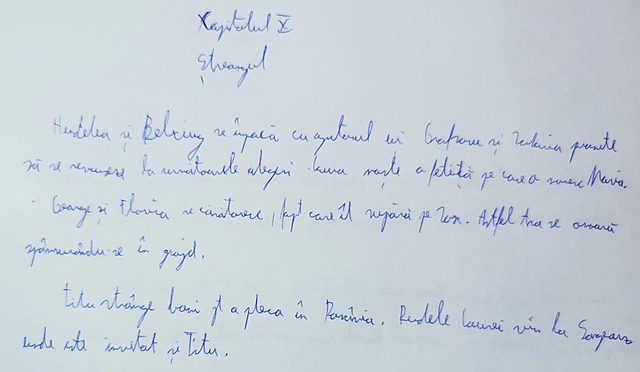 Capitolul X
Ștreangul
Herdelea și Belciug se împacă cu ajutorul lui Grofșoru și promite
să se revanșeze la următoarele alegeri. Laura naște o fetiță pe care o numesc Maria.
George și Florica se căsătoresc, fapt care îl supără pe Ion. Astfel Ana se omoară
spânzurându-se în grajd.
Titu strânge bani pt a pleca în România. Rudele Laurei vin la Sângeorz
unde este invitat și Titu.